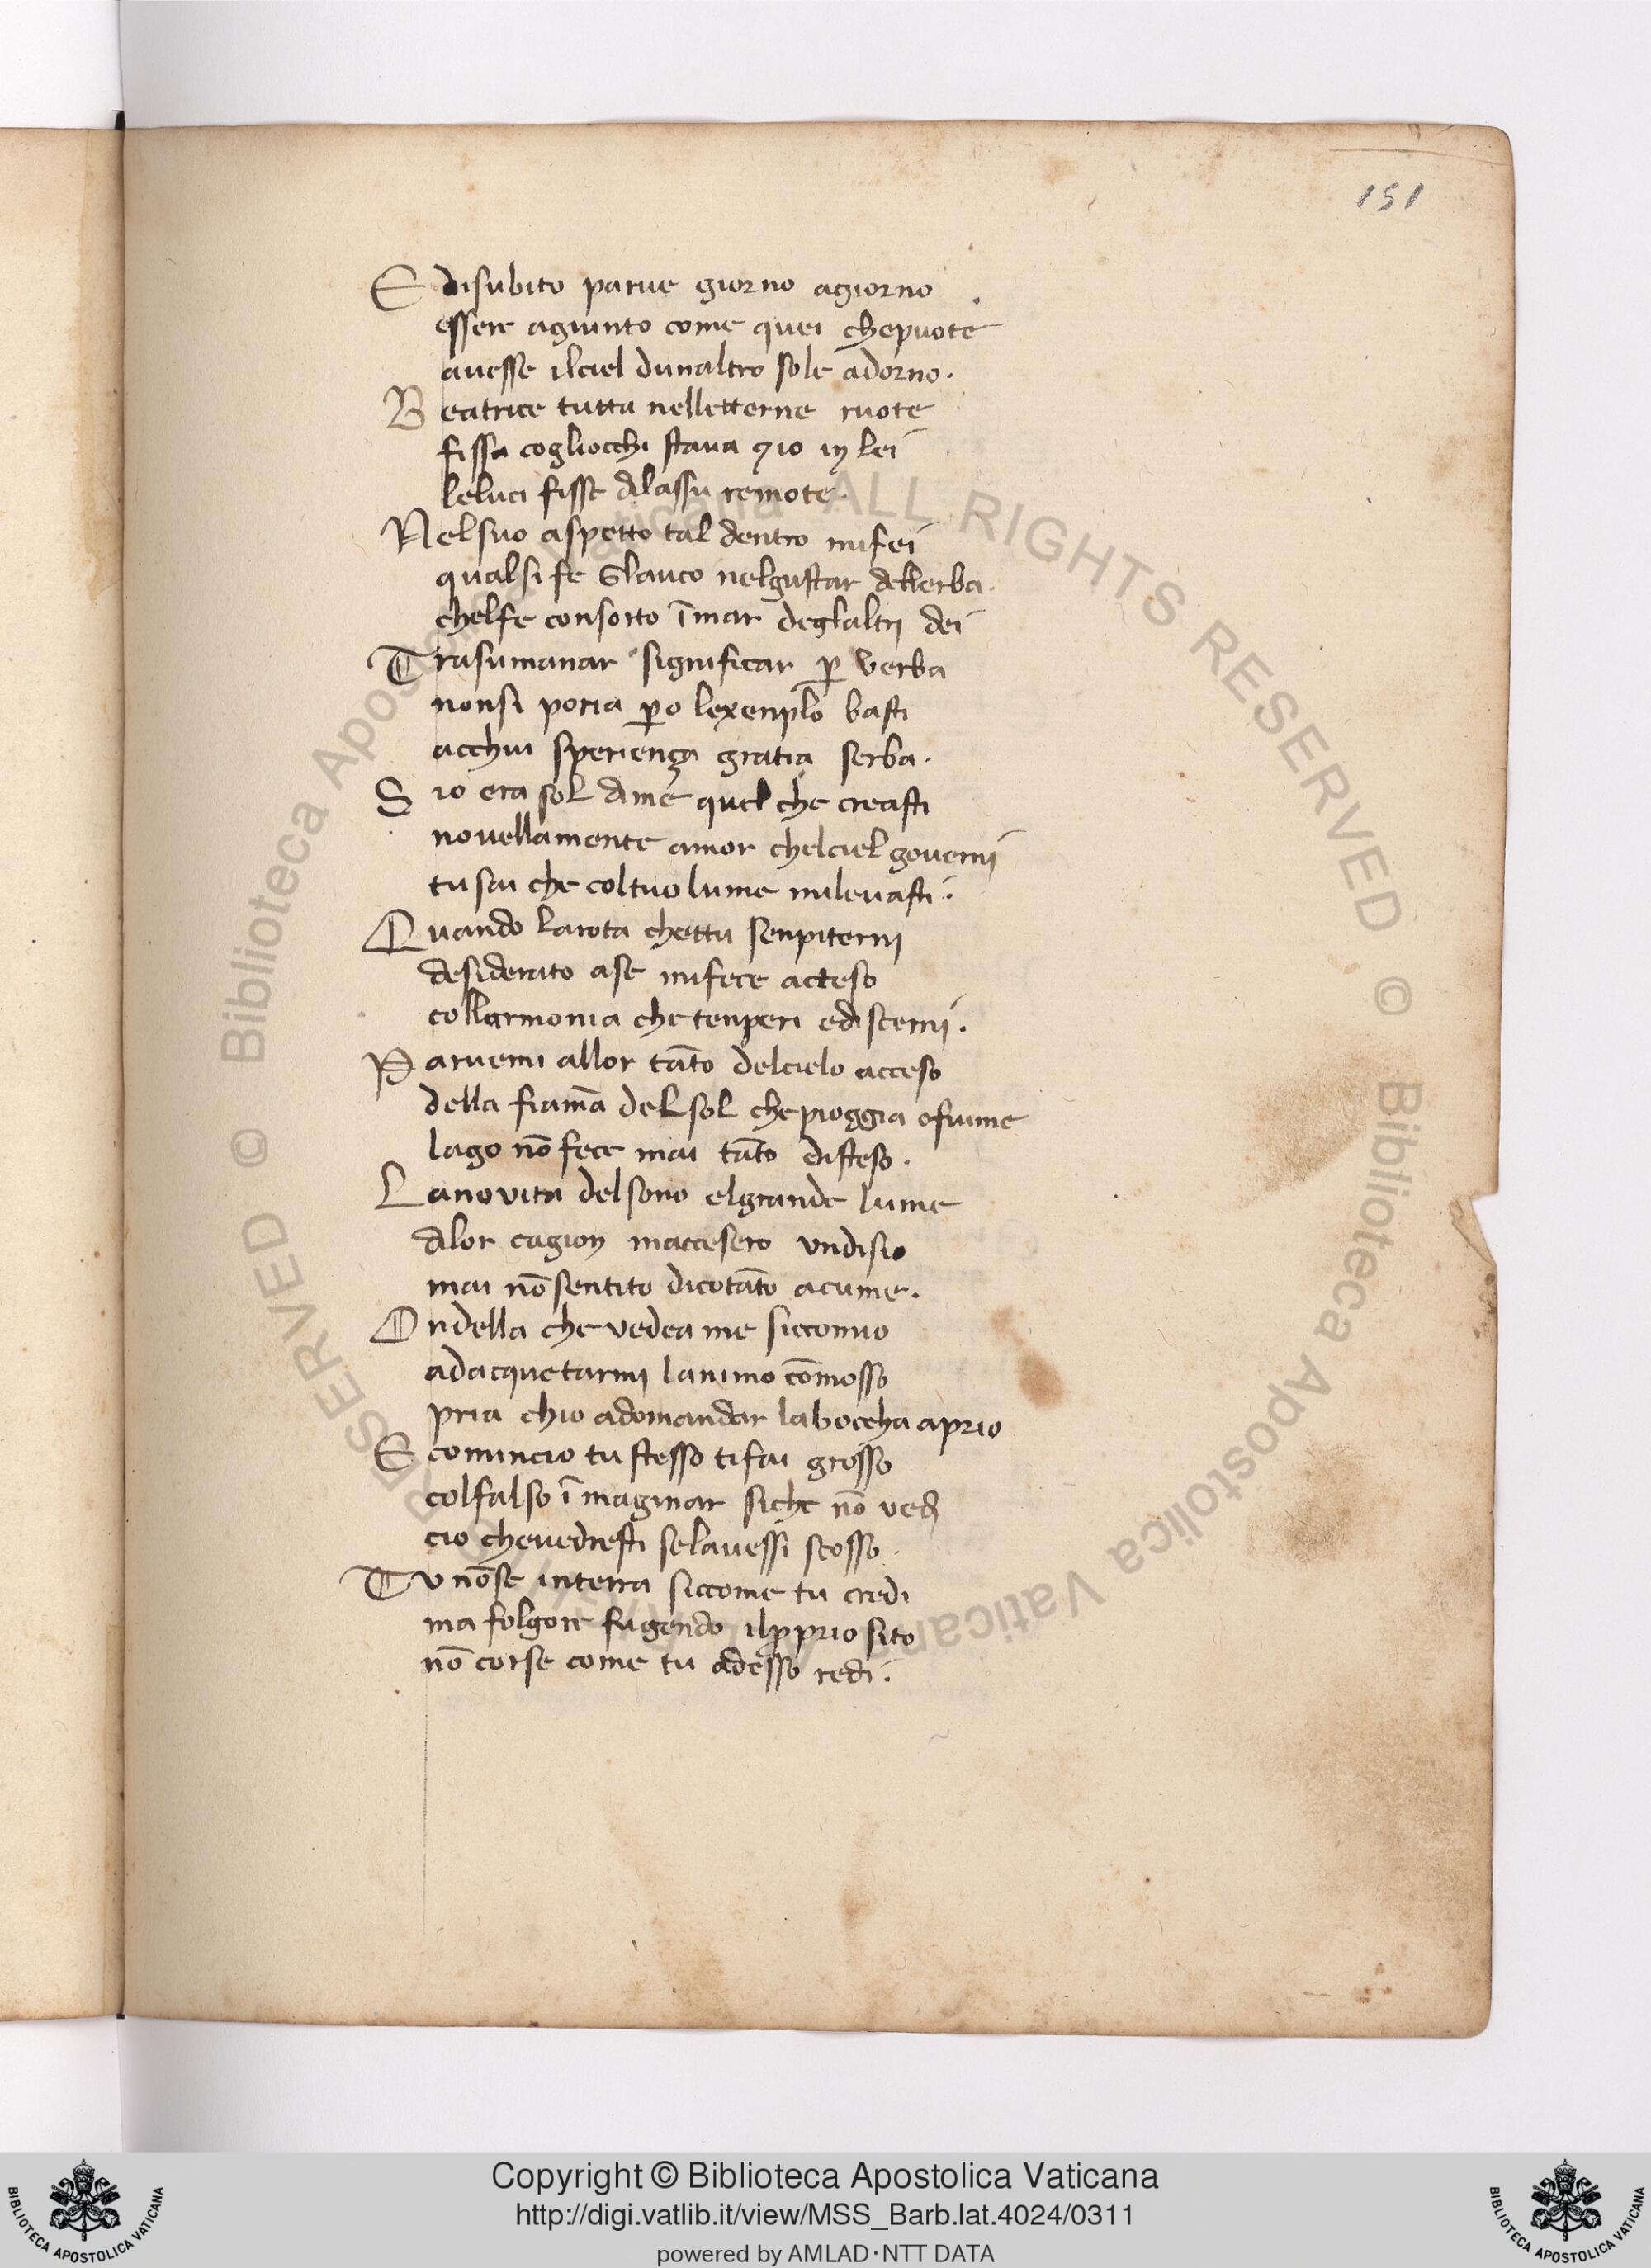 151
E disubito parue giorno agiorno
essere agiunto come quei chepuote
auesse ilciel dunaltro sole adorno.
B eatrice tutta nelletterne ruote
fissa cogliocchi staua 7io in lei
leluci fisse dilassu remote.
Nelsuo aspetto tal dentro mifei
qualsi fe Glauco nelgustar dellerba.
chelfe consorto ī mar deglaltrj dei
Trasumanar significar ꝑ verba
nonsi poria ꝑo lexenplo basti
acchui speriença gratia serba.
S io era sol dime quel che creasti
nouellamente amor chelciel gouernj
tu sai che coltuo lume mileuasti.
Quando larota chettu senpiternj
desiderato ase mifece acteso
collarmonia che tenperi ediscernj.
Paruemi allor tāto delcielo acceso
della fiam̄a del sol che pioggia ofiume
lago nō fece mai tāto disteso.
Lanouita delsono elgrande lume
dilor cagion maccesero vndisio
mai nō sentito dicotāto acume.
Ondella che vedea me siccomio
adacquetarmj lanimo cōmosso
pria chio adomandar laboccha aprio
E comincio tu stesso tifai grosso
colfalso ī maginar siche nō vedj
cio cheuedresti selauessi scosso.
Tu nōse interra siccome tu credi
ma folgore fugendo ilꝓprio sito
nō corse come tu adesso redi.
Copyright © Biblioteca Apostolica Vaticana
http://digi.vatlib.it/view/MSS_Barb.lat.4024/0311
powered by AMLAD·NTT DATA
BIBLIOTECA APOSTOLICA VATICANA
BIBLIOTECA APOSTOLICA VATICANA
© Biblioteca Apostolica Vaticana ALL RIGHTS RESERVED © Biblioteca Apostolica Vaticana ALL RIGHTS RESERVED